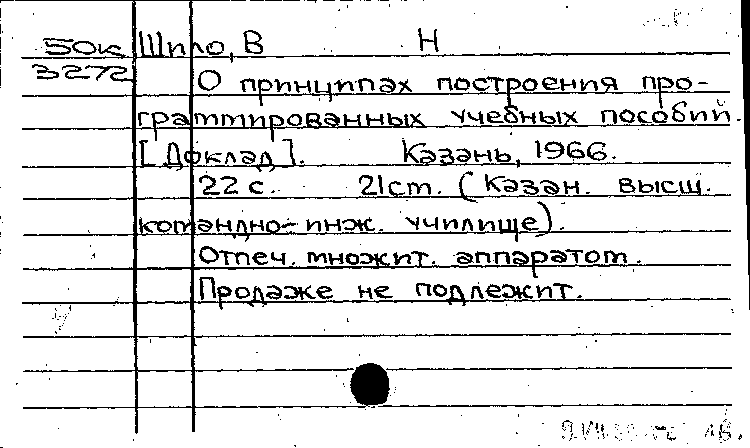 50к Шило, В Н
3272 О принципах построения про-
граммированных учебных пособий.
[Доклад]. Казань, 1966.
22 с. 21см. (Казан. высш.
командно-инж. училище).
Отпеч. множит. аппаратом.
Продаже не подлежит.